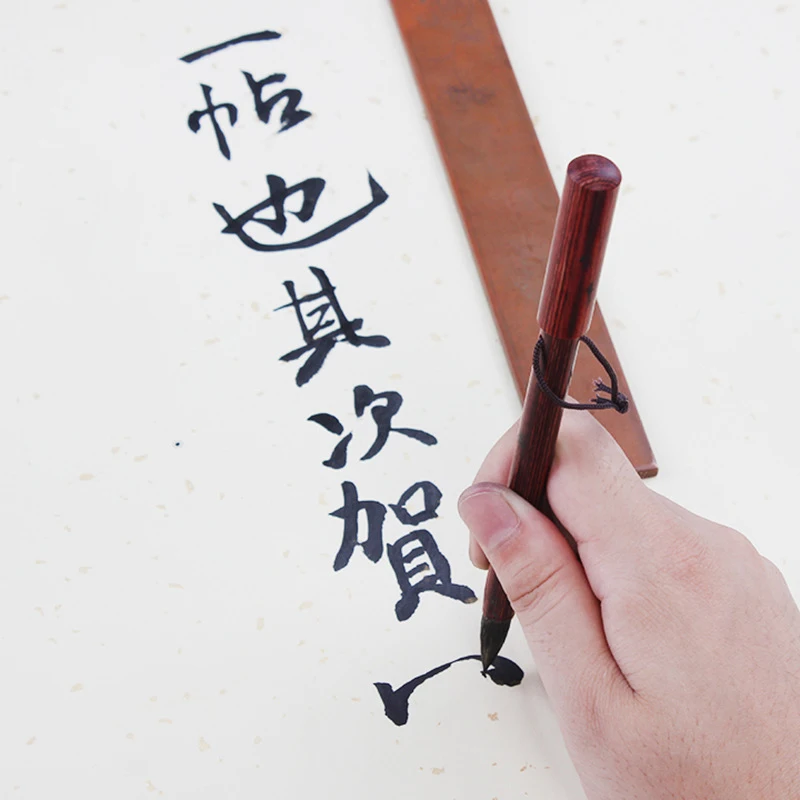 一帖也其次賀